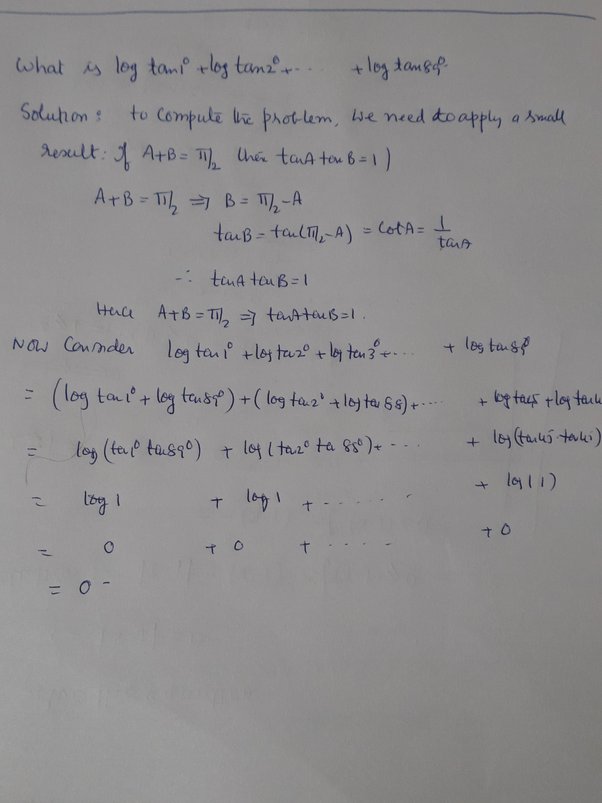 What is log tan1° + log tan2° + ... + log tan89°
Solution: to compute the problem, we need to apply a small
result: If A+B = π/2 then tanA tanB = 1)
A+B = π/2 ⇒ B = π/2 - A
tanB = tan(π/2 - A) = CotA = 1/tanA
∴ tanA tanB = 1
Hence A+B = π/2 ⇒ tanA tanB = 1.
NOW Consider log tan1° + log tan2° + log tan3° + ... + log tan89°
= (log tan1° + log tan89°) + (log tan2° + log tan 88) + ... + log tan45 + log tan
= log(tan1° tan89°) + log(tan2° tan 88°) + ... + log(tan45 · tan45)
= log 1 + log 1 + ...... + log(1)
= 0 + 0 + ..... + 0
= 0 -